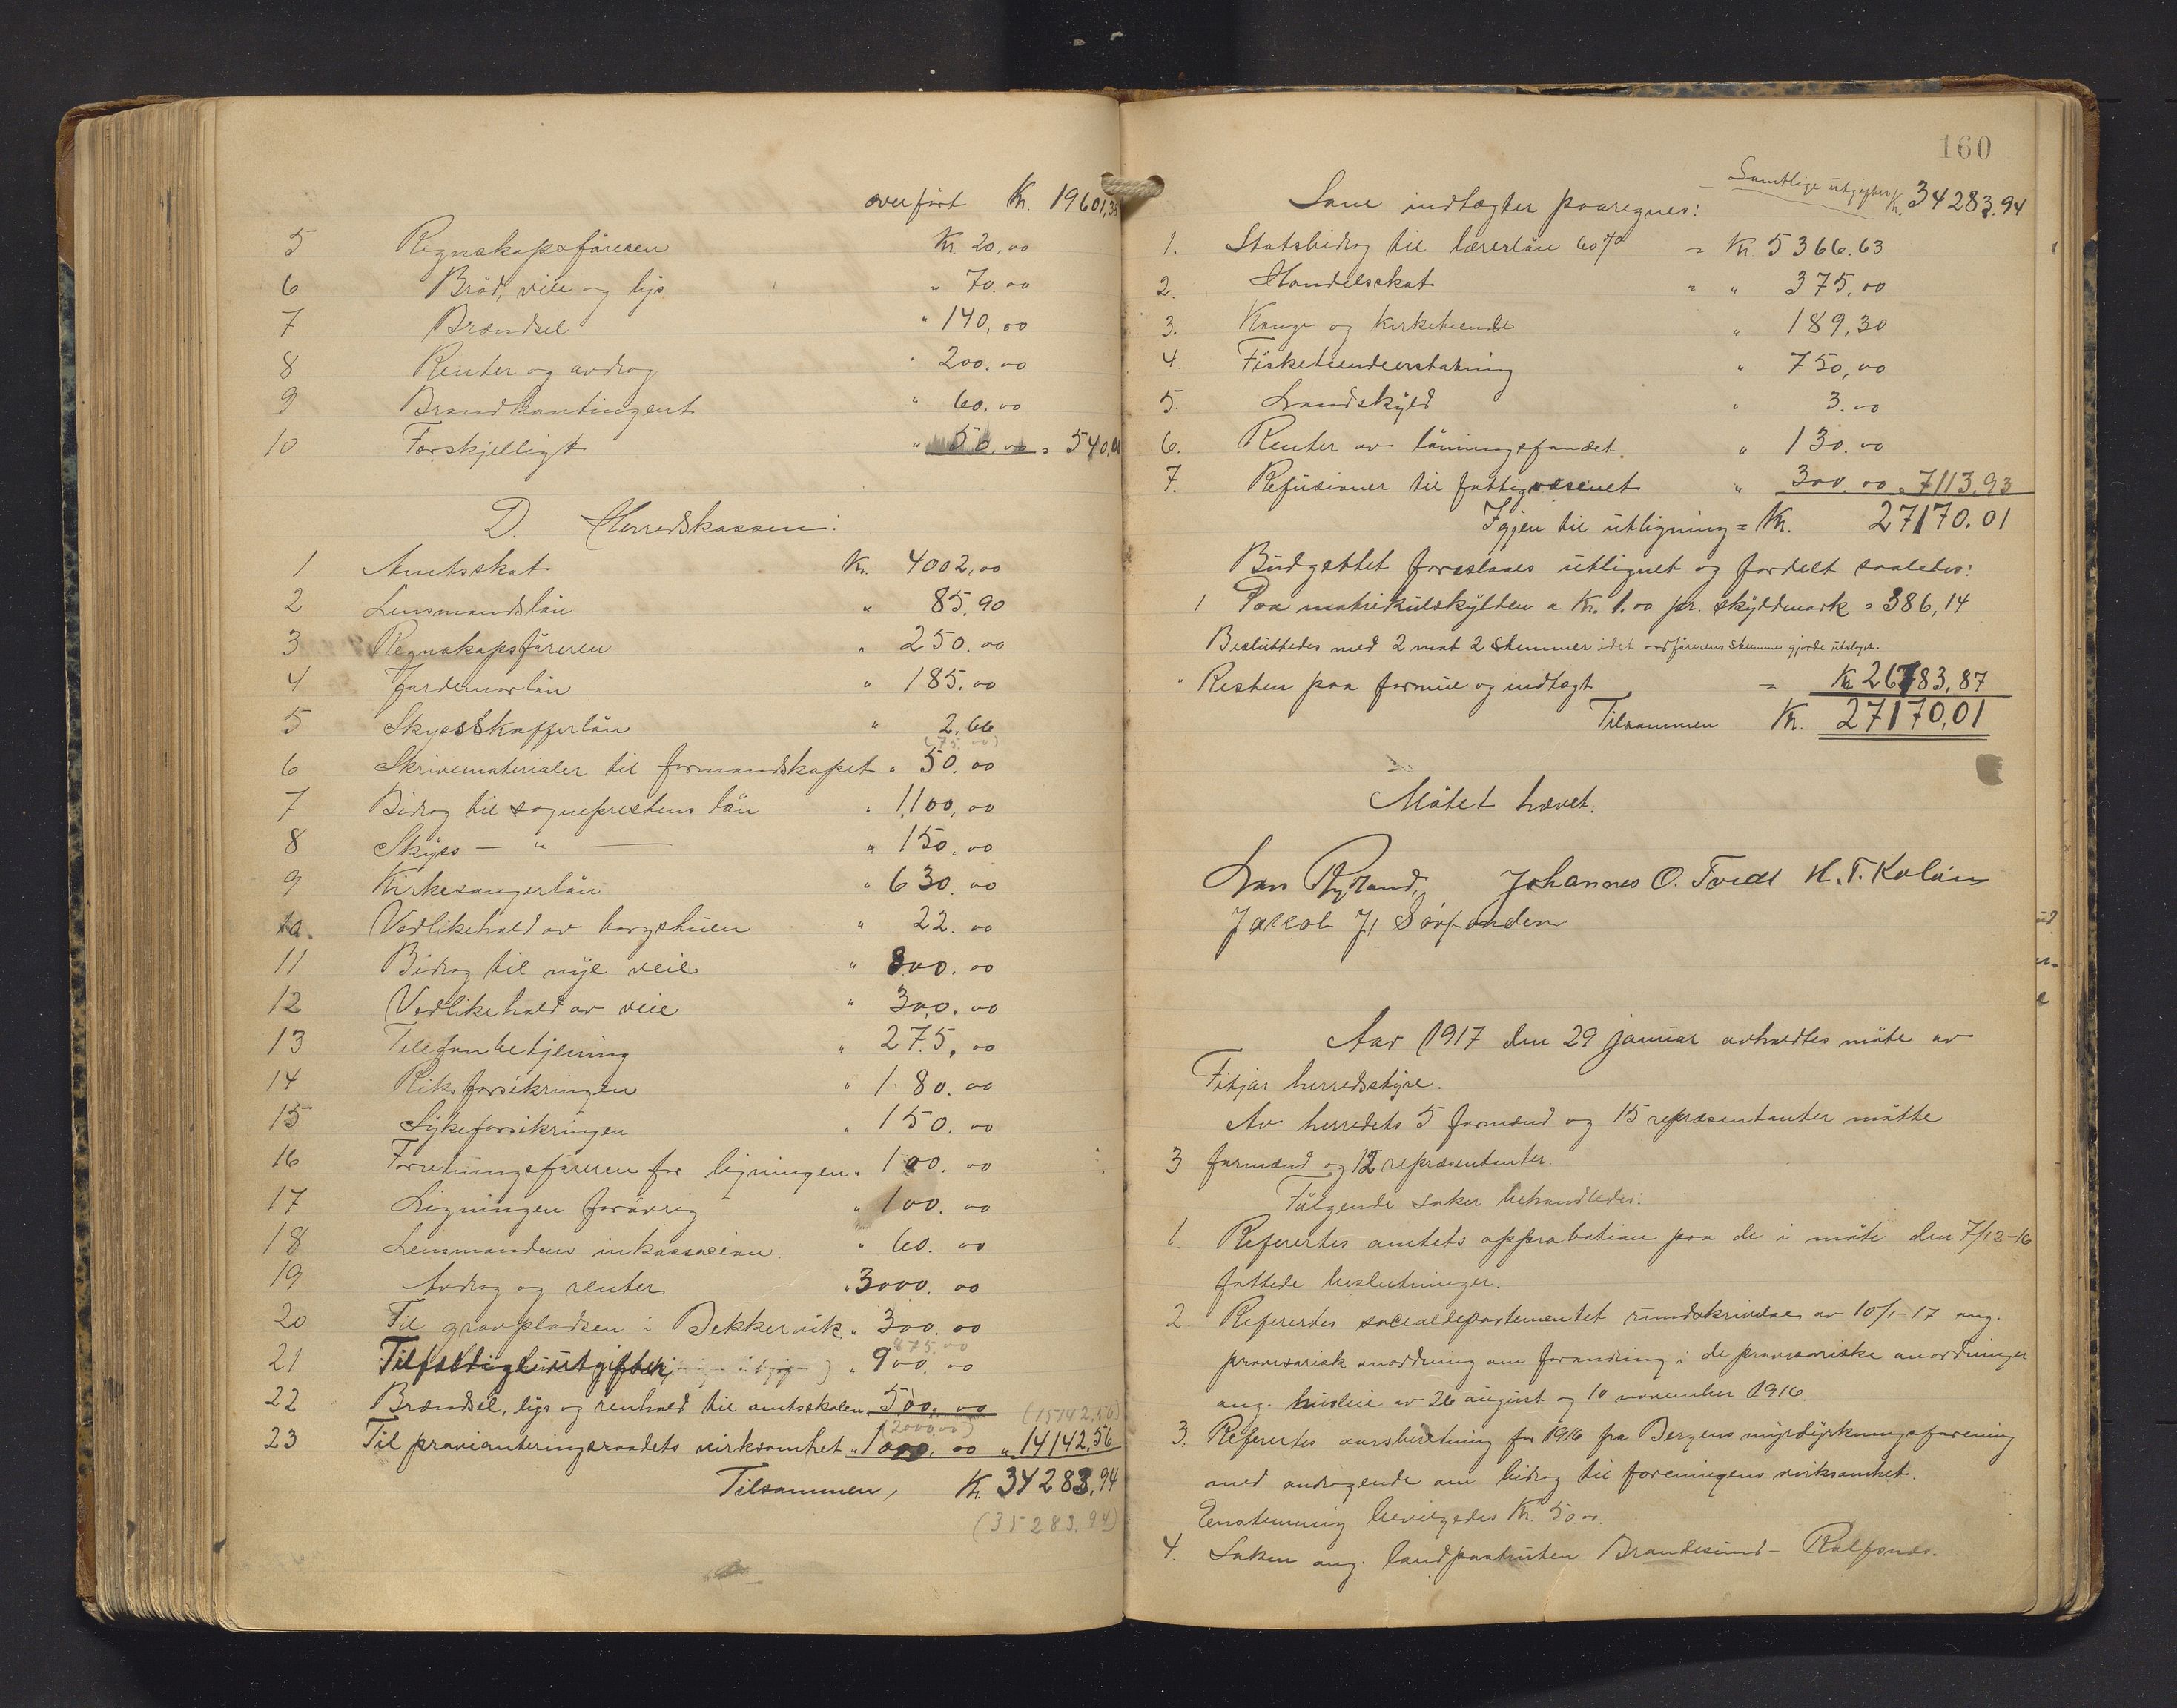 overfört Kr. 19601,38
5 Regnskapsföreren Kr. 20,00
6 Bröd, vin og lys " 70.00
7 Brændsel " 140,00
8 Renter og avdrag " 200.00
9 Brandkontingent " 60.00
10 Forskjelligt " 50,00 = 540,00
D. Herredskassen:
1 Amtsskat Kr. 4002,00
2 Lensmandslön " 85.90
3 Regnskapsföreren " 250.00
4 Jordemorlön " 185.00
5 Skysskafferlön " 2,66
(75.00)
6 Skrivematerialer til formandskapet " 50.00
7 Bidrag til sogneprestens lön " 1,100,00
8 Skyss — " — " 150.00
9 Kirkesangerlön " 630.00
10. Vedlikehold av borgstuen " 22.00
11 Bidrag til nye veie " 800.00
12 Vedlikehold av veie " 300.00
13 Telefonbetjening " 275,00
14 Riksforsikringen " 180.00
15 Sykeforsikringen " 150.00
16 Forretningsföreren for ligningen " 100.00
17 Ligningen forövrig " 100.00
18 Lensmandens inkassation " 60.00
19 Avdrag og renter " 3000.00
20 Til gravpladsen i Dekkervik " 300.00
875.00
21 Tilfældige utgifter ) " 900.00
22 Brændsel, lys og renhold til amtsskolen 500.00 (15142.56)
(2000,00)
23 Til provianteringsraadets virksomhet " 1000.00 " 14142,56
Tilsammen, Kr. 34283,94
(35283.94)
160
Samtlige utgifter Kr. 34283.94
Som indtægter paaregnes:
1. Statsbidrag til lærerlön 60% = Kr. 5366.63
2. Handelsskat = " 375.00
3. Konge og Kirketiende " 189,30
4. Fisketiendeerstatning " 750,00
5. Landskyld " 3.00
6. Renter av lönningsfondet. " 130.00
7. Refusioner til fattigvæsenet " 300.00 = 7113,93
Igjen til utligning = Kr. 27170.01
Budgettet foreslaaes utlignet og fordelt saaledes:
1 Paa matrikulskylden a Kr. 1.00 pr. skyldmark = 386,14
Besluttedes med 2 mot 2 stemmer idet ordförerens stemme gjorde utslaget.
" Resten paa formue og indtægt = Kr 26783,87
Tilsammen Kr. 27170,01
Mötet hævet.
Lars Rydland, Johannes O. Tvedt H. T. Koløen
Jakob J. Sörfonden
Aar 1917 den 29 januar avholdtes möte av
Fitjar herredsstyre.
Av herredets 5 formænd og 15 repræsentanter mötte
3 formænd og 12 repræsentanter.
Fölgende saker behandledes:
1. Referertes amtets approbation paa de i möte den 7/12-16
fattede beslutninger.
2. Refererdes socialdepartementet rundskrivelse av 10/1-17 ang.
provisorisk anordning om forandring i de provisoriske anordninger
ang. husleie av 26 august og 10 november 1916.
3. Refererdes aarsberetning for 1916 fra Bergens myrdyrkningsforening
med andragende om bidrag til foreningens virksomhet.
Enstemmig bevilgedes Kr. 50.00.
4. Saken ang. landpostruten Brandesund - Rolfsnes.